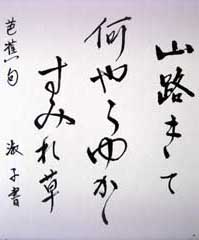 山路きて
何やらゆかし
すみれ草
芭蕉句 淑子書